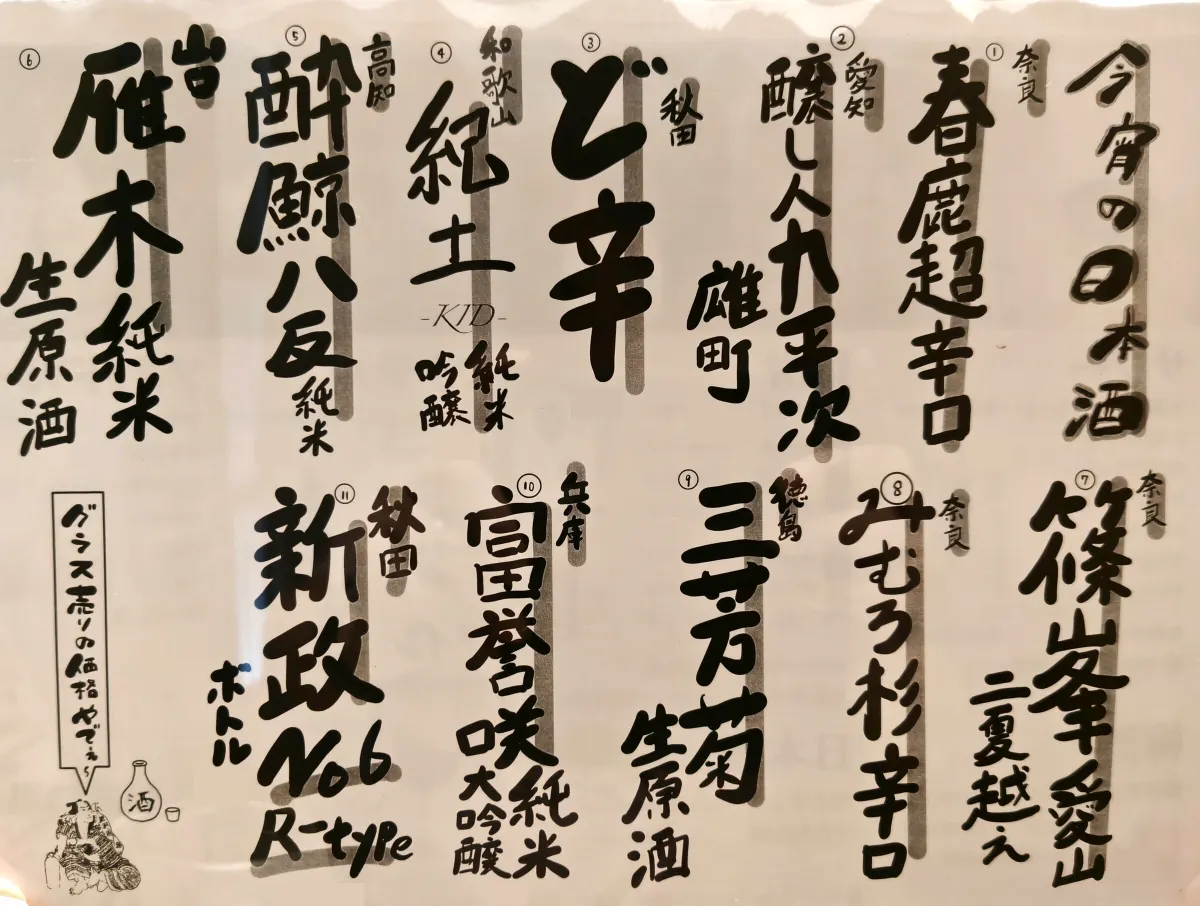 今宵の日本酒
①
奈良
春鹿超辛口
②
愛知
醸し人九平次
雄町
③
秋田
ど辛
④
和歌山
紀土
-KID-
純米
吟醸
⑤
高知
酔鯨八反
純米
⑥
山口
雁木純米
生原酒
⑦
奈良
篠峯愛山
二夏越え
⑧
奈良
みむろ杉辛口
⑨
徳島
三芳菊
生原酒
⑩
兵庫
富田誉咲純米
大吟醸
⑪
秋田
新政
No6
R-type
ボトル
グラス売りの価格やでぇ〜
酒